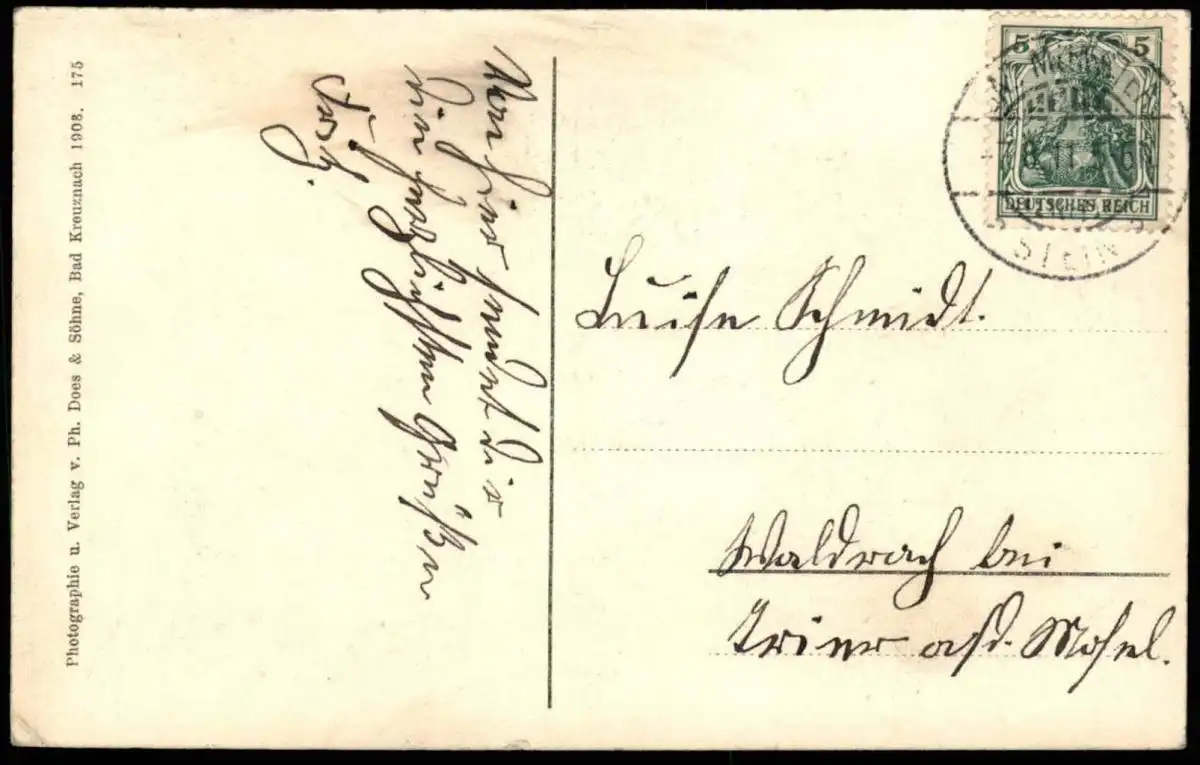 Photographie u. Verlag v. Ph. Does & Söhne, Bad Kreuznach 1908. 175
Von hier sendet dir
die herzlichsten Grüßen
5 5
DEUTSCHES REICH
STEIN
Luise Schmidt.
Waldrach bei
Trier a/d. Mosel.